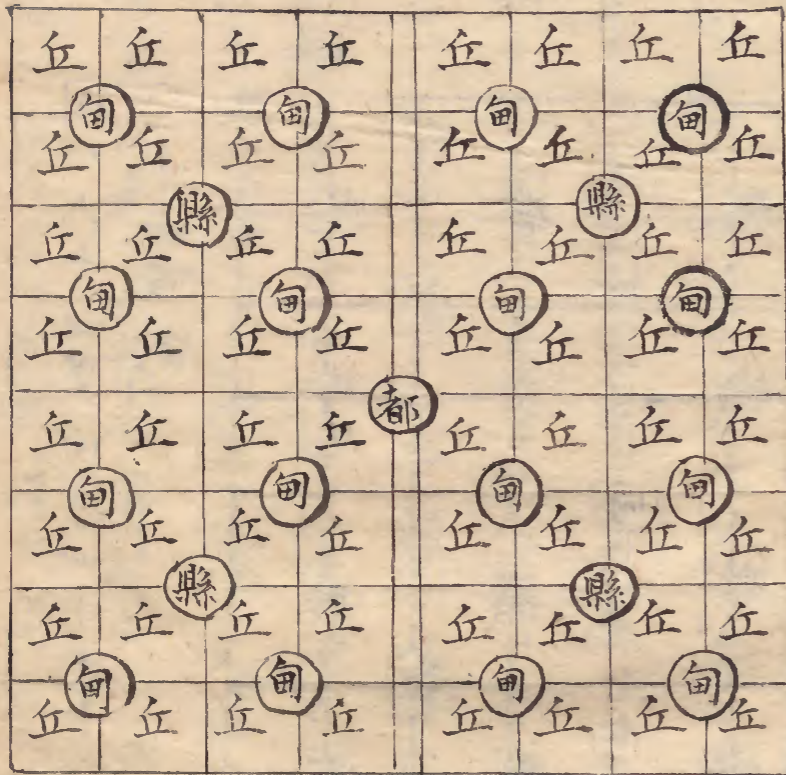 丘 丘 丘 丘 丘 丘 丘 丘
甸 甸 甸 甸
丘 丘 丘 丘 丘 丘 丘 丘
縣 縣
丘 丘 丘 丘 丘 丘 丘 丘
甸 甸 甸 甸
丘 丘 丘 丘 丘 丘 丘 丘
都
丘 丘 丘 丘 丘 丘 丘 丘
甸 甸 甸 甸
丘 丘 丘 丘 丘 丘 丘 丘
縣 縣
丘 丘 丘 丘 丘 丘 丘 丘
甸 甸 甸 甸
丘 丘 丘 丘 丘 丘 丘 丘